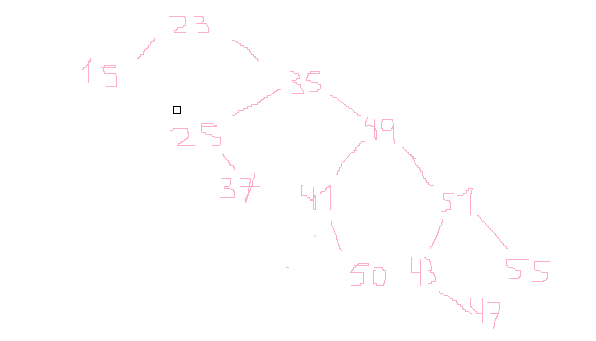 23
15
35
25
49
37
41
51
50
43
55
47